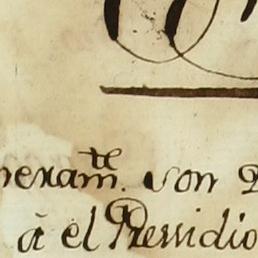 neramte. son
á el Pressidio